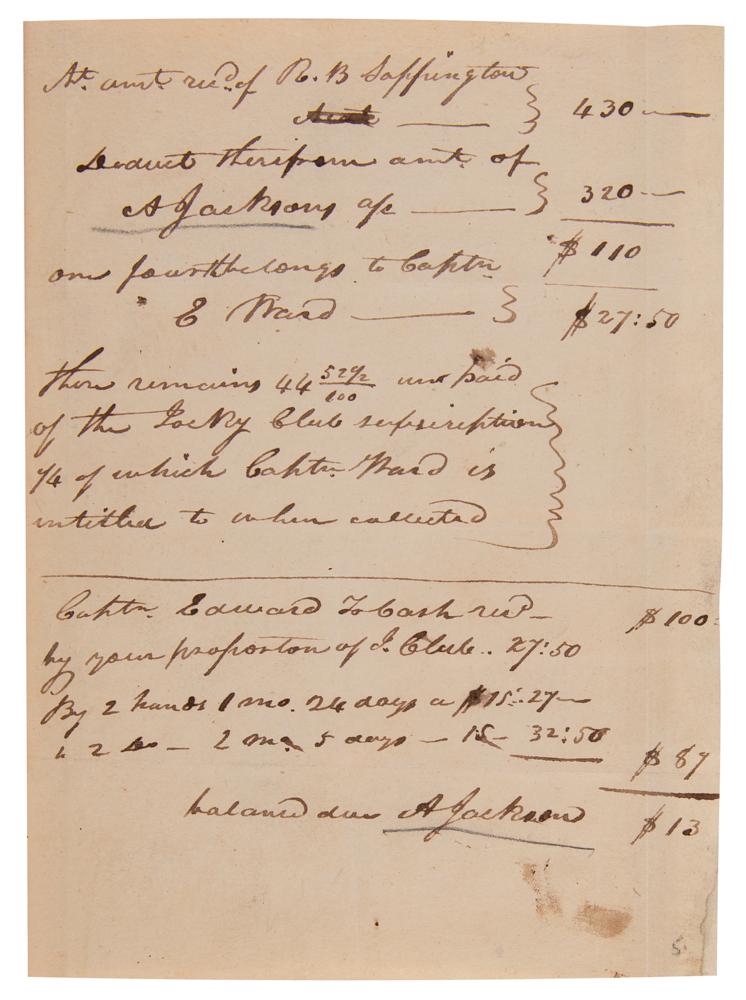 At. amt. recd. of R. B Sappington } 430—
Deduct therefrom amt. of
A Jacksons a/c — } 320—
$110
one fourth belongs to Captn
E Ward — } $27:50
there remains 44 52½/100 un paid
of the Jocky Club subscription
¼ of which Captn. Ward is
intitled to when collected
Captn. Edward To Cash recd— $100:
by your proporton of J. Club.. 27:50
By 2 hands 1 mo. 24 days a $15:. 27—
" 2 Do — 2 mo. 5 days — 15— 32:50
$87
balance due A Jackson $13
5